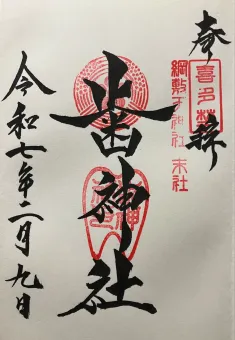 奉拝
喜多埜
綱敷天神社 末社
歯神社
令和七年二月九日